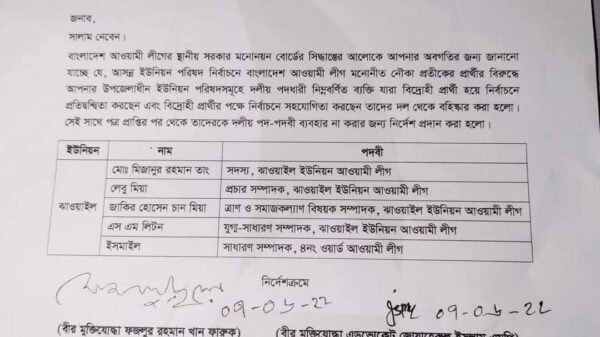 জনাব,
সালাম নেবেন।
বাংলাদেশ আওয়ামী লীগের স্থানীয় সরকার মনোনয়ন বোর্ডের সিদ্ধান্তের আলোকে আপনার অবগতির জন্য জানানো
যাচ্ছে যে, আসন্ন ইউনিয়ন পরিষদ নির্বাচনে বাংলাদেশ আওয়ামী লীগ মনোনীত নৌকা প্রতীকের প্রার্থীর বিরুদ্ধে
আপনার উপজেলাধীন ইউনিয়ন পরিষদসমূহে দলীয় পদধারী নিম্নবর্ণিত ব্যক্তি যারা বিদ্রোহী প্রার্থী হয়ে নির্বাচনে
প্রতিদ্বন্দ্বিতা করছেন এবং বিদ্রোহী প্রার্থীর পক্ষে নির্বাচনে সহযোগিতা করছেন তাদের দল থেকে বহিষ্কার করা হলো।
সেই সাথে পত্র প্রাপ্তির পর থেকে তাদেরকে দলীয় পদ-পদবী ব্যবহার না করার জন্য নির্দেশ প্রদান করা হলো।
ইউনিয়ন নাম পদবী
ঝাওয়াইল মোঃ মিজানুর রহমান তাং সদস্য, ঝাওয়াইল ইউনিয়ন আওয়ামী লীগ
লেবু মিয়া প্রচার সম্পাদক, ঝাওয়াইল ইউনিয়ন আওয়ামী লীগ
জাকির হোসেন চান মিয়া ত্রাণ ও সমাজকল্যাণ বিষয়ক সম্পাদক, ঝাওয়াইল ইউনিয়ন আওয়ামী লীগ
এস এম লিটন যুগ্ম-সাধারণ সম্পাদক, ঝাওয়াইল ইউনিয়ন আওয়ামী লীগ
ইসমাইল সাধারণ সম্পাদক, ৪নং ওয়ার্ড আওয়ামী লীগ
নির্দেশক্রমে
০৭-০৬-২২ ০৭-০৬-২২
(বীর মুক্তিযোদ্ধা ফজলুর রহমান খান ফারুক) (বীর মুক্তিযোদ্ধা এডভোকেট